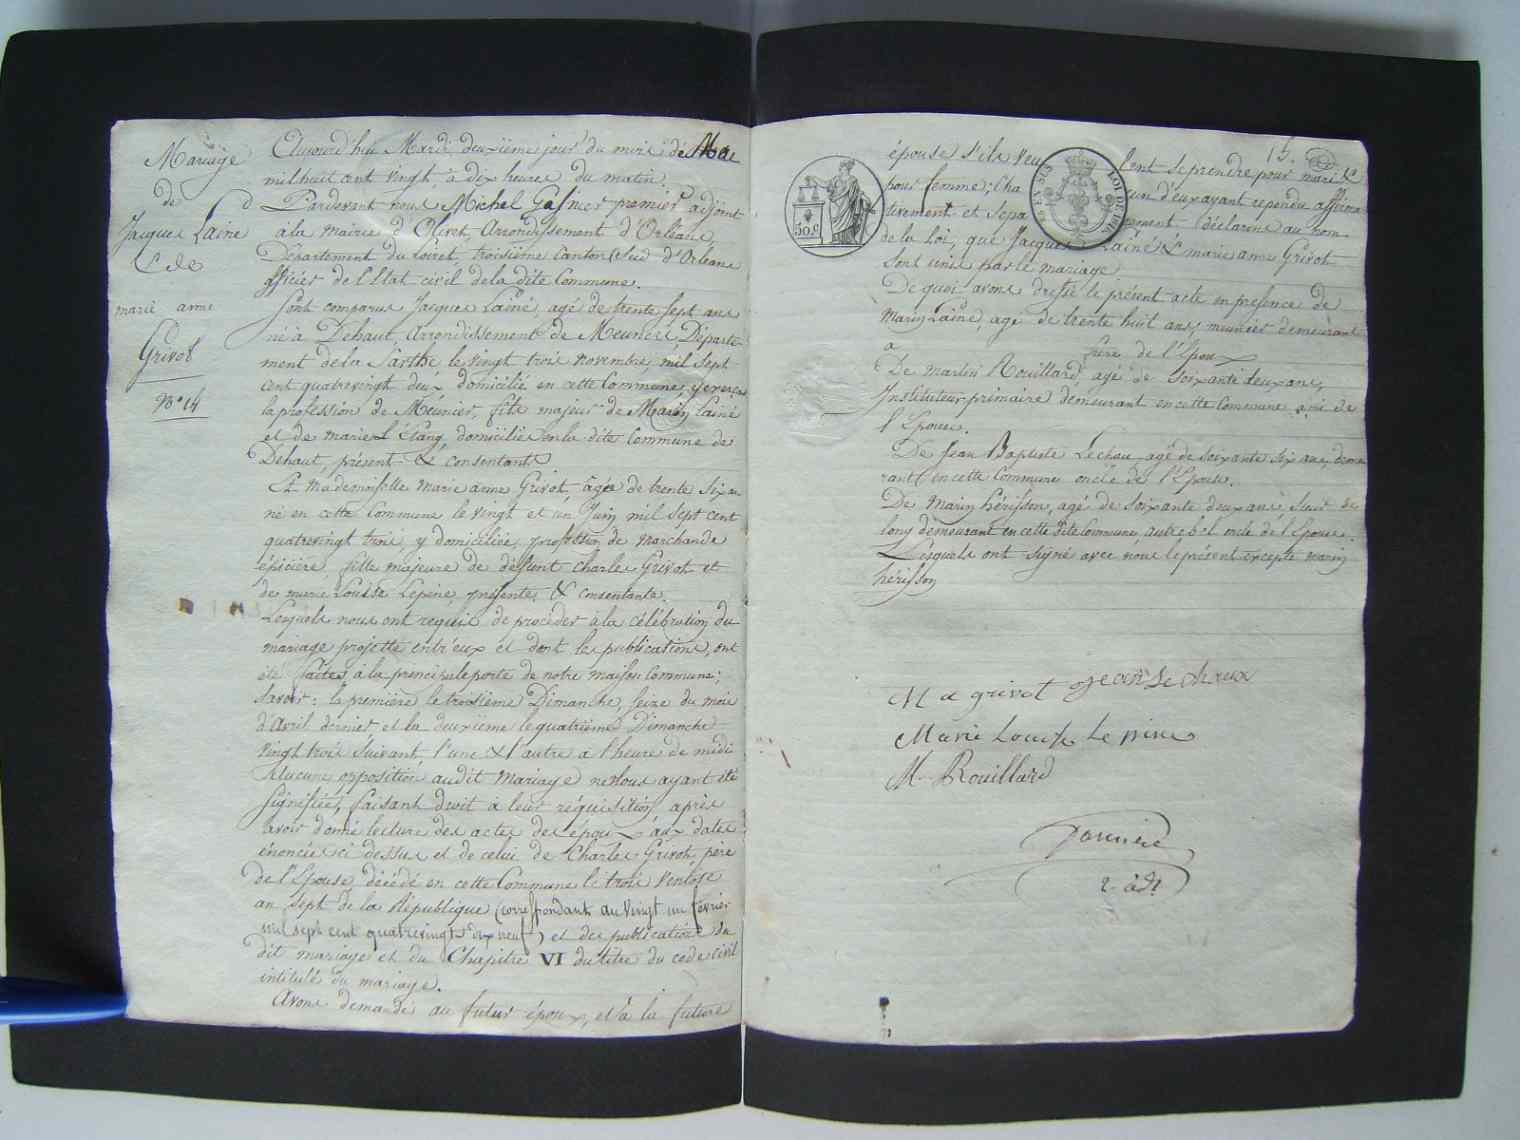 Mariage
de
Jacques Lainé
&
marie anne
Grivot
N° 14
Aujourd'hui Mardi deuxième jour du mois de Mai
mil huit cent vingt, à dix heures du matin
Pardevant nous Michel premier adjoint
à la mairie d'Olivet, Arrondissement d'Orléans,
Département du Loiret, troisième Canton (Sud) d'Orléans
officier de l'Etat civil de la dite Commune.
Sont comparus Jacques Lainé, agé de trente sept ans
né à Dehaut, Arrondissement de Mamers, Départe-
ment de la Sarthe le vingt trois novembre, mil sept
cent quatrevingt deux domicilié en cette Commune, y exerçant
la profession de Meunier, fils majeur de Marin Lainé
et de marie L'Etang domiciliés en la dite Commune de
Dehaut, présents & consentants
Et mademoiselle marie anne Grivot, agée de trente six ans
né en cette Commune le vingt et un Juin mil sept cent
quatrevingt trois, y domiciliée, profession de marchande
épicière, fille majeure de défunt Charles Grivot et
de marie Louise Lepine, présente & consentante.
Lesquels nous ont requis de procéder à la célébration du
mariage projetté entr'eux et dont les publications, ont
été faites à la principale porte de notre maison Commune;
Savoir: la première le troisième Dimanche, seize du mois
d'Avril dernier et la deuxième le quatrième Dimanche
vingt trois suivant, l'une & l'autre à l'heure de midi
Aucune opposition audit mariage ne nous ayant été
signifiée, faisant droit à leur réquisition, après
avoir donné lecture des actes des époux aux dates
énoncées ci dessus et de celui de Charles Grivot, père
de l'Epouse, décédé en cette Commune le trois Ventose
an sept de la République (correspondant au vingt un février
mil sept cent quatrevingt dix neuf) et des publications du
dit mariage et du Chapitre VI du titre du code civil
intitulé du mariage.
Avons demandé au futur époux, et à la future
15.
épouse s'ils veulent se prendre pour mari &
pour femme; Chacun d'eux ayant répondu affirma-
tivement et séparement, déclarons au nom
de la Loi, que Jacques Lainé & marie anne Grivot
sont unis par le mariage
De quoi avons dressé le présent acte en presence de
Marin Lainé, agé de trente huit ans, meunier demeurant
a frère de l'Epoux
De martin Rouillard agé de soixante deux ans,
Instituteur primaire demeurant en cette Commune ami de
l'Epouse.
De Jean Baptiste Lechaux agé de soixante six ans, demeu
rant en cette Commune oncle de l'Epouse.
De Marin hérisson, agé de soixante deux ans, Scieur de
long demeurant en cette dite Commune, autre bel oncle de l'Epouse.
Lesquels ont signé avec nous le présent excepté marin
hérisson
50 c
LOI DE
M a grivot Jean Le chaux
Marie Louise Lepine
M. Rouillard